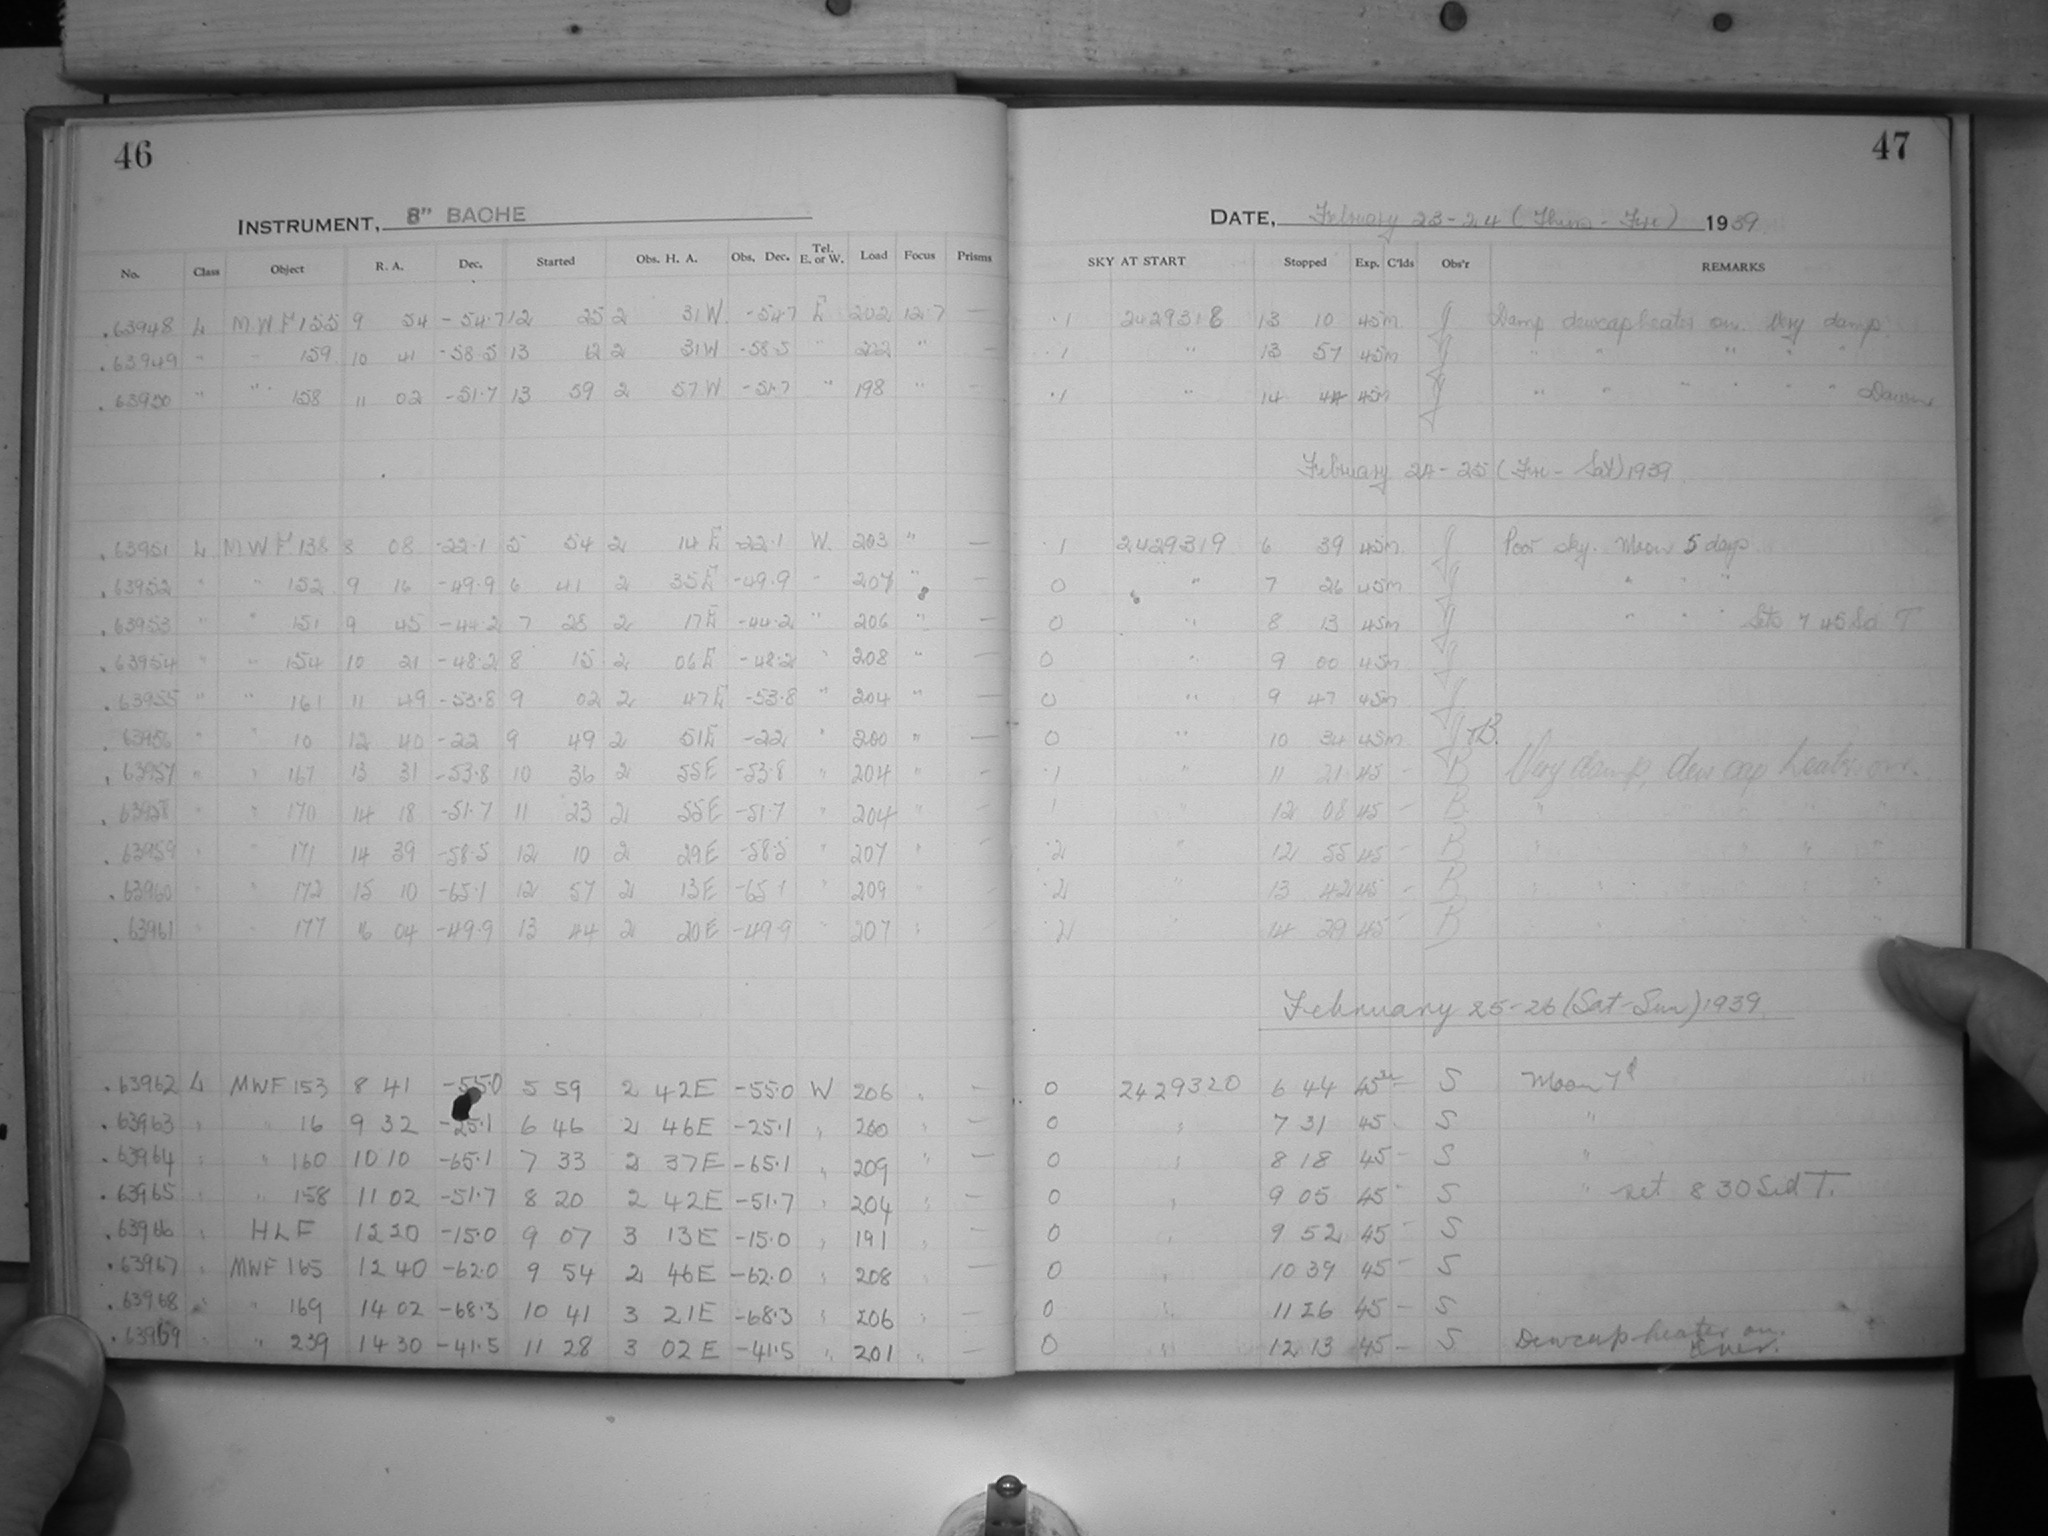 46
INSTRUMENT, 8" BAOHE
No. Class Object R. A. Dec. Started Obs. H. A. Obs, Dec. Tel. E. or W. Load Focus Prisms
.63948 L MWF 155 9 54 -54.7 12 25 2 31W -54.7 E 202 12.7 —
.63949 " " 159 10 41 -58.5 13 12 2 31W -58.5 " 222 " —
.63950 " " 158 11 02 -51.7 13 59 2 57W -51.7 " 198 " —
.63951 L MWF 138 8 08 -22.1 5 54 2 14E -22.1 W. 203 " —
.63952 " " 152 9 16 -49.9 6 41 2 35E -49.9 " 207 " —
.63953 " " 151 9 45 -44.2 7 28 2 17E -44.2 " 206 " —
.63954 " " 154 10 21 -48.2 8 15 2 06E -48.2 " 208 " —
.63955 " " 161 11 49 -53.8 9 02 2 47E -53.8 " 204 " —
.63956 " " 10 12 40 -22 9 49 2 51E -22 " 200 " —
.63957 " " 167 13 31 -53.8 10 36 2 55E -53.8 " 204 " —
.63958 " " 170 14 18 -51.7 11 23 2 55E -51.7 " 204 " —
.63959 " " 171 14 39 -58.5 12 10 2 29E -58.5 " 207 " —
.63960 " " 172 15 10 -65.1 12 57 2 13E -65.1 " 209 " —
.63961 " " 177 16 04 -49.9 13 44 2 20E -49.9 " 207 " —
.63962 L MWF 153 8 41 -55.0 5 59 2 42E -55.0 W 206 " —
.63963 " " 16 9 32 -25.1 6 46 2 46E -25.1 " 200 " —
.63964 " " 160 10 10 -65.1 7 33 2 37E -65.1 " 209 " —
.63965 " " 158 11 02 -51.7 8 20 2 42E -51.7 " 204 " —
.63966 " HLF 12 20 -15.0 9 07 3 13E -15.0 " 191 " —
.63967 " MWF 165 12 40 -62.0 9 54 2 46E -62.0 " 208 " —
.63968 " " 169 14 02 -68.3 10 41 3 21E -68.3 " 206 " —
.63969 " " 239 14 30 -41.5 11 28 3 02E -41.5 " 201 " —
47
DATE, February 23-24 (Thurs - Fri) 1939
SKY AT START Stopped Exp. C'lds Obs'r REMARKS
.1 2429318 13 10 45m J Damp dewcap heater on. Very damp
.1 " 13 57 45m J " " " " "
.1 " 14 44 45m J " " " " " "
February 24-25 (Fri - Sat) 1939
.1 2429319 6 39 45m J Poor sky. Moon 5 days
0 " 7 26 45m J " " "
0 " 8 13 45m J " " " Sets 7 45 Sd T
0 " 9 00 45m J
0 " 9 47 45m J
0 " 10 34 45m J+B.
.1 " 11 21 45 - B Very damp, dew cap heater on.
1 " 12 08 45 - B " " " "
.2 " 12 55 45 - B " " " " "
.2 " 13 42 45 - B " " " "
.2 " 14 29 45 - B " " " "
February 25-26 (Sat-Sun) 1939
0 2429320 6 44 45m S Moon 7d
0 " 7 31 45 - S "
0 " 8 18 45 - S "
0 " 9 05 45 - S " set 8 30 Sid T.
0 " 9 52 45 - S
0 " 10 39 45 - S
0 " 11 26 45 - S
0 " 12 13 45 - S Dewcap heater on.